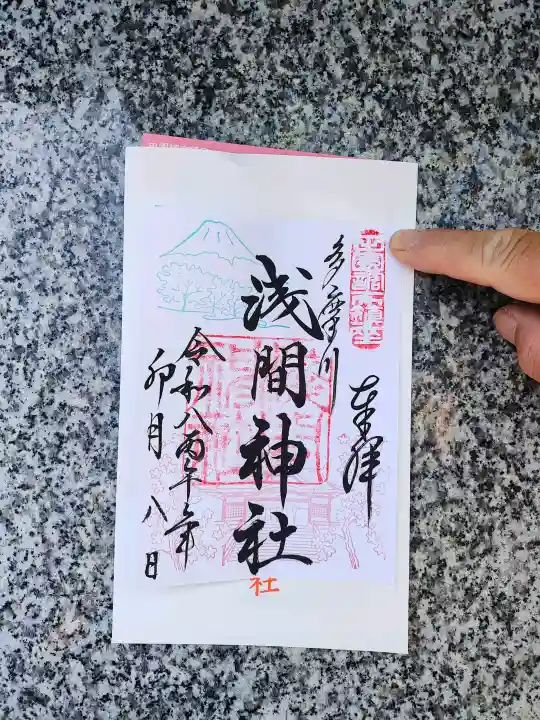 奉拝
多摩川
浅間神社
令和八丙午年
卯月八日
社